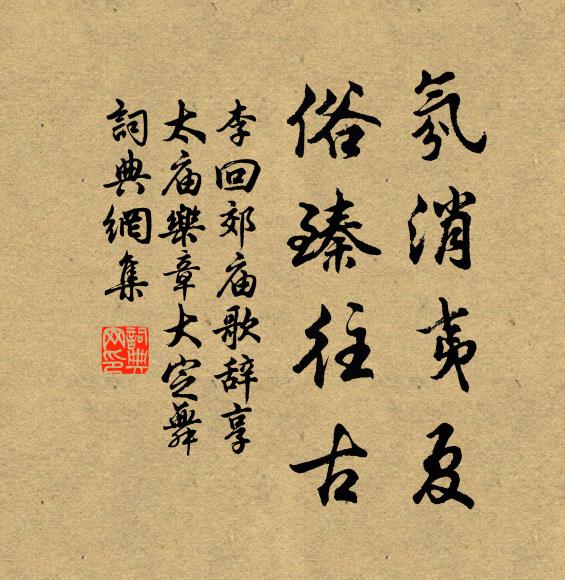 氛消夷夏
俗臻往古
李回郊庙歌辞享
太庙樂章大定舞
詞典網集
詞典网印